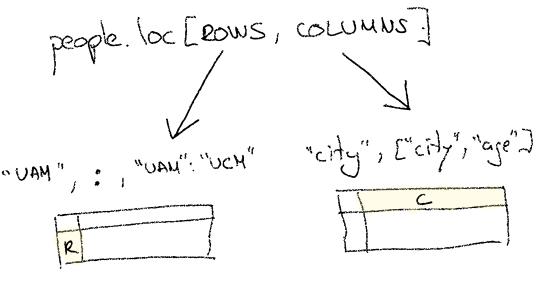 people.loc[ROWS, COLUMNS]
"UAM", :, "UAM":"UCM"
"city", ["city", "age"]
R
C